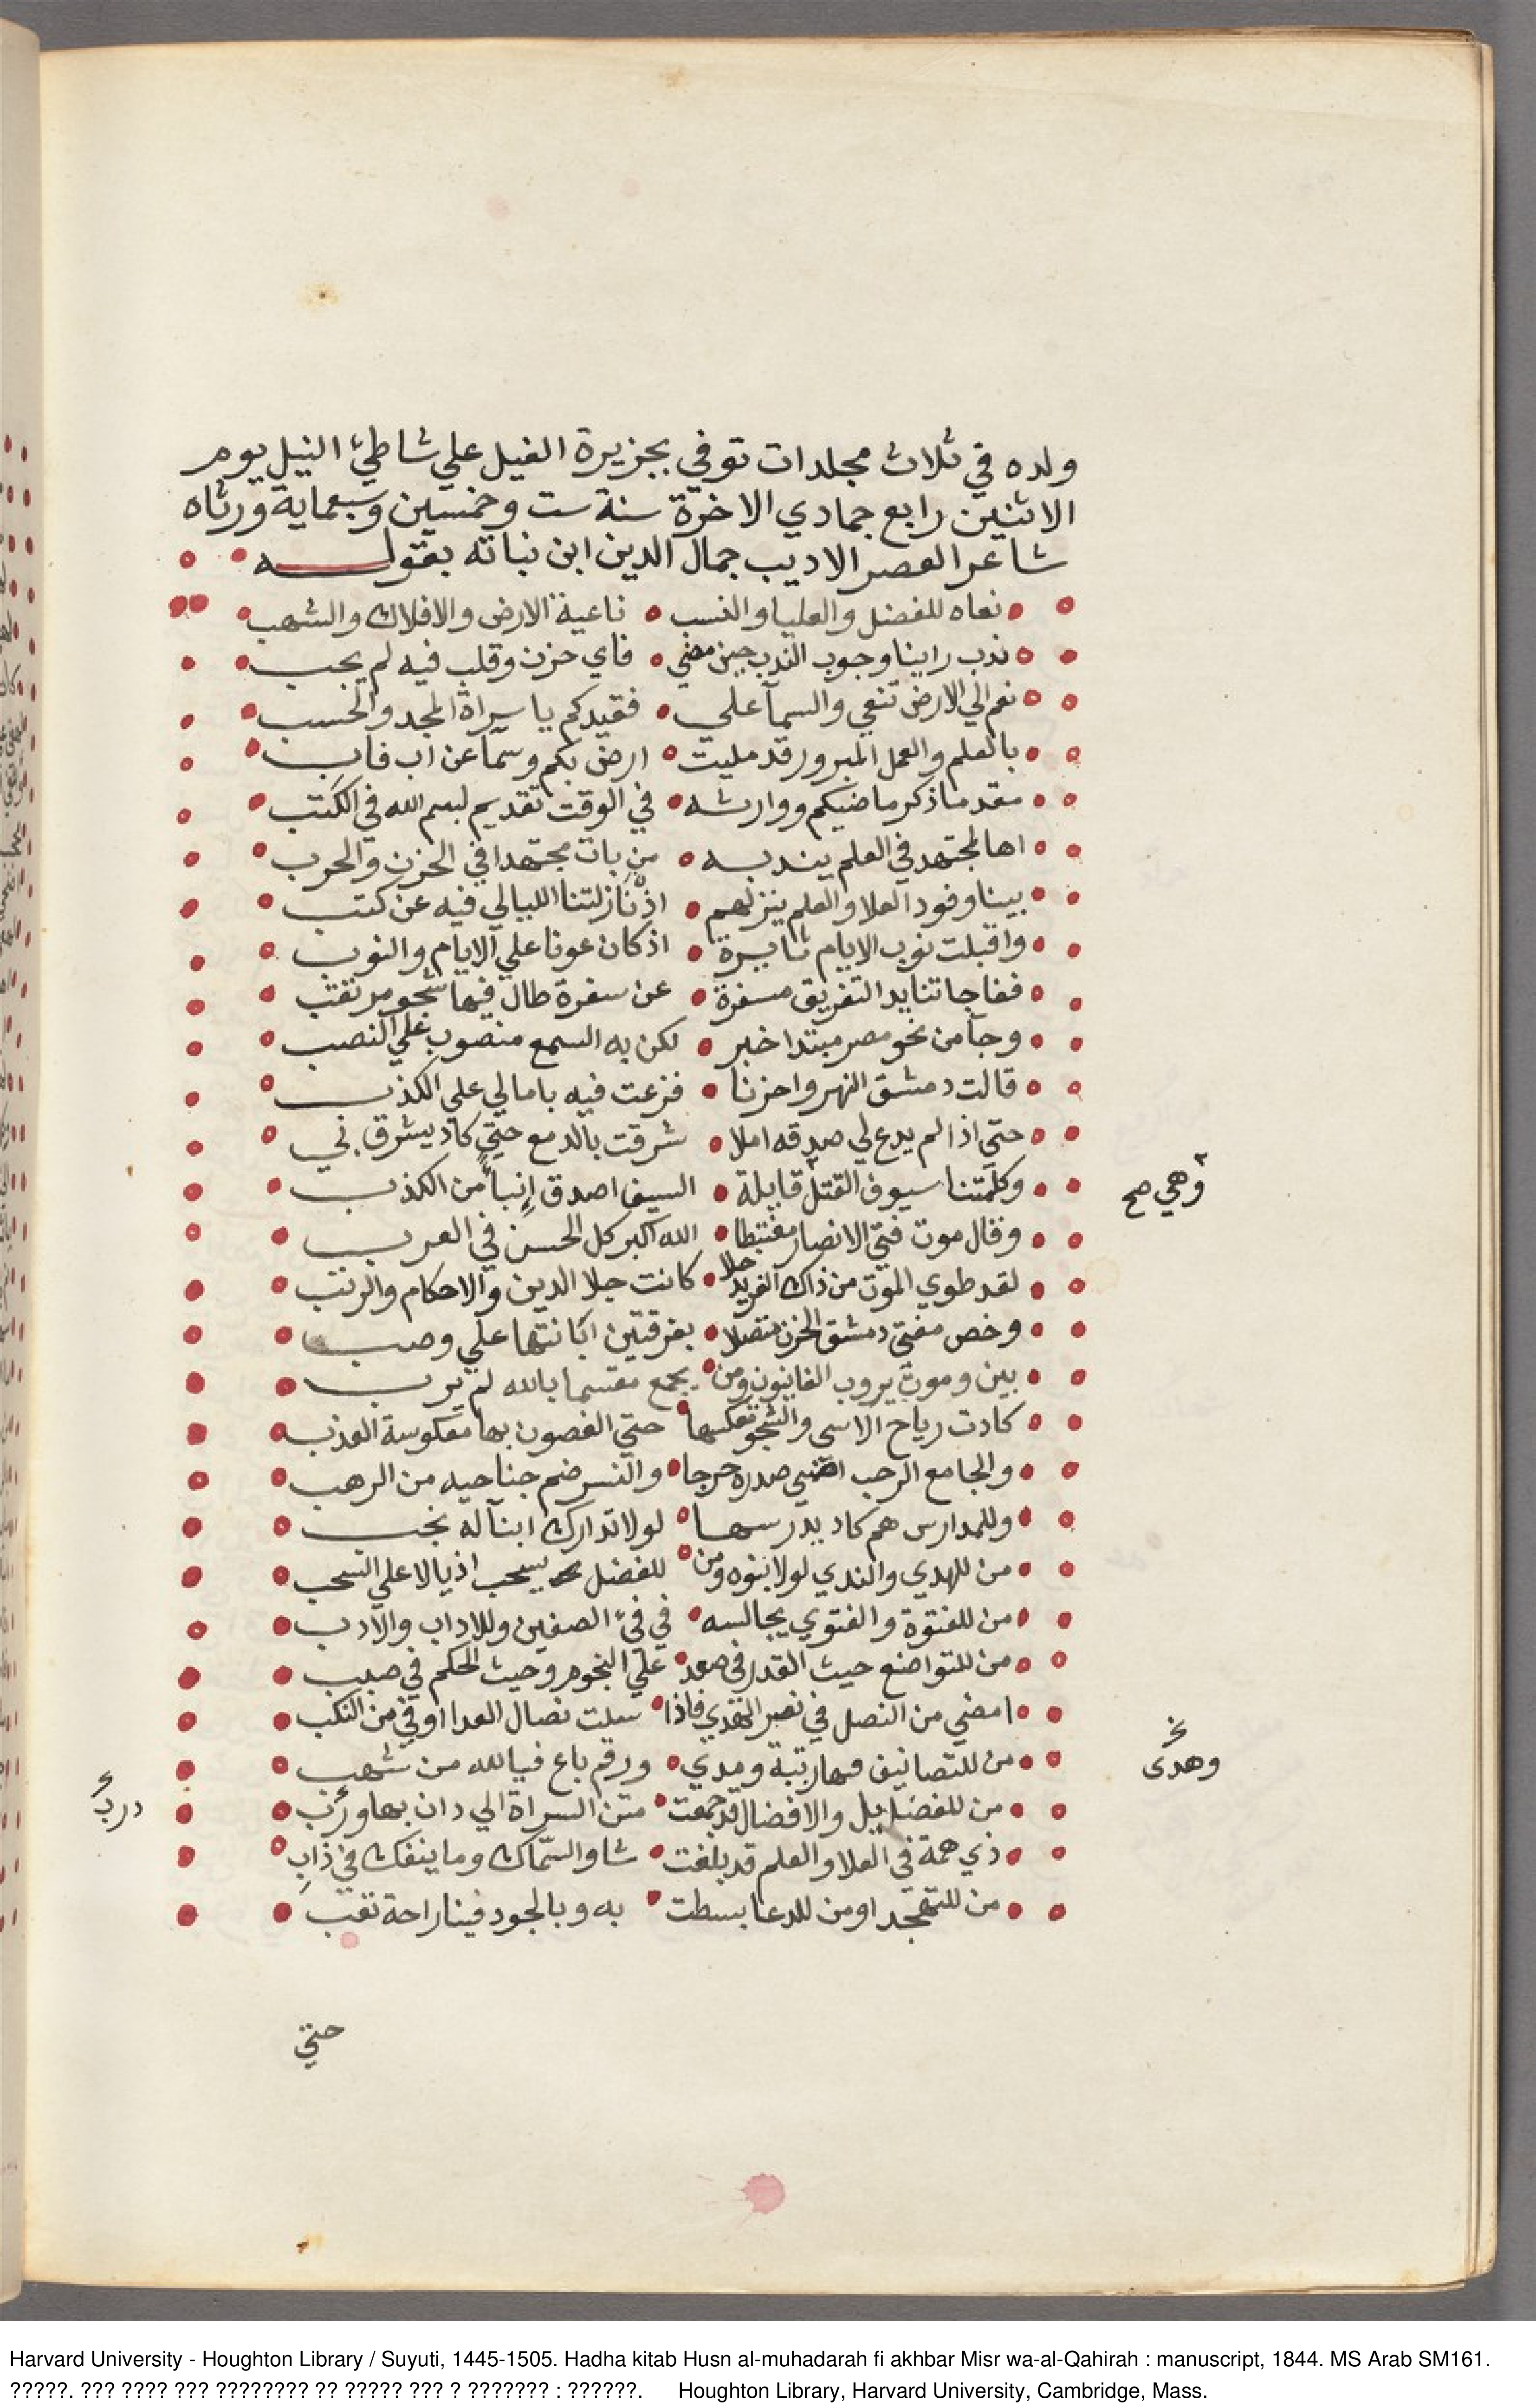 ولده في ثلاث مجلدات توفي بجزيرة الفيل علي شاطئ النيل يوم
الاثنين رابع جمادي الاخرة سنة ست وخمسين وسبعماية ورثاه
شاعر العصر الاديب جمال الدين ابن نباته بقوله
نعاه للفضل والعليا والنسب ناعية الارض والافلاك والشهب
ندب راينا وجوب الندب حين مضي فاي حزن وقلب فيه لم يجب
نعم الي الارض تنعي والسمآ علي فقيدكم يا سراة المجد والحسب
بالعلم والعمل المبرور قد مليت ارض بكم وسما عن اب فاب
مقدما ذكر ماضيكم ووارثه في الوقت تقديم لبسم الله في الكتب
اها لمجتهد في العلم يندبه من بات مجتهدا في الحزن والحرب
بينا وفود العلا والعلم ينزلهم اذ نازلتنا الليالي فيه عن كتب
واقبلت نوب الايام ثايرة اذ كان عونا علي الايام والنوب
ففاجاتنا يد التفريق مسفرة عن سفرة طال فيها شجو مرتقب
وجآ من نحو مصر مبتدا خبر لكن به السمع منصوب علي النصب
قالت دمشق النهر واحزنا فزعت فيه بامالي علي الكذب
حتي اذا لم يدع لي صدقه املا شرقت بالدمع حتي كاد يشرق بي
وكلمتنا سيوف القتل قايلة السيف اصدق إنباءً من الكذب
وهي صح
وقال موت فتي الانصار مغتبطا الله اكبر كل الحسن في العرب
لقد طوي الموت من ذاك الفريد حلا كانت حلا الدين والاحكام والرتب
وخص مفتي دمشق الحزن متصلا بفرقتين اباتتها علي وصب
بين وموت يروب الغايبون ومن يجمع مقسما بالله لم يرب
كادت رياح الاسي والشجو تعكسها حتي الغصون بها معكوسة العذب
والجامع الرحب اضحي صدره حرجا والنسر ضم جناحيه من الرهب
وللمدارس هم كاد يدرسها لولا تدارك ابنآ له نجب
من للهدي والندي لولا بنوه ومن للفضل يسحب اذيالا علي السحب
من للفتوة والفتوي يجالسه في فئ الصفين وللاداب والادب
من للتواضع حيث القدر في صعد علي النجوم وحيث الحكم في صبب
امضي من النصل في نصر الهدي فاذا سلت نصال العدا اوفي من النكب
من للتصانيف فيها رتبة ومدي ورقم باع فيا لله من شهب
وهدى
من للفضايل والافضال قد جمعت متن السراة الي دان بها ورب
درب
ذي همة في العلا والعلم قد بلغت شاو السماك وما ينفك في ذاب
من للتهجد او من للدعا بسطت به وبالجود فينا راحة تعب
حتي
Harvard University - Houghton Library / Suyuti, 1445-1505. Hadha kitab Husn al-muhadarah fi akhbar Misr wa-al-Qahirah : manuscript, 1844. MS Arab SM161.
?????. ??? ???? ??? ???????? ?? ????? ??? ? ??????? : ??????. Houghton Library, Harvard University, Cambridge, Mass.